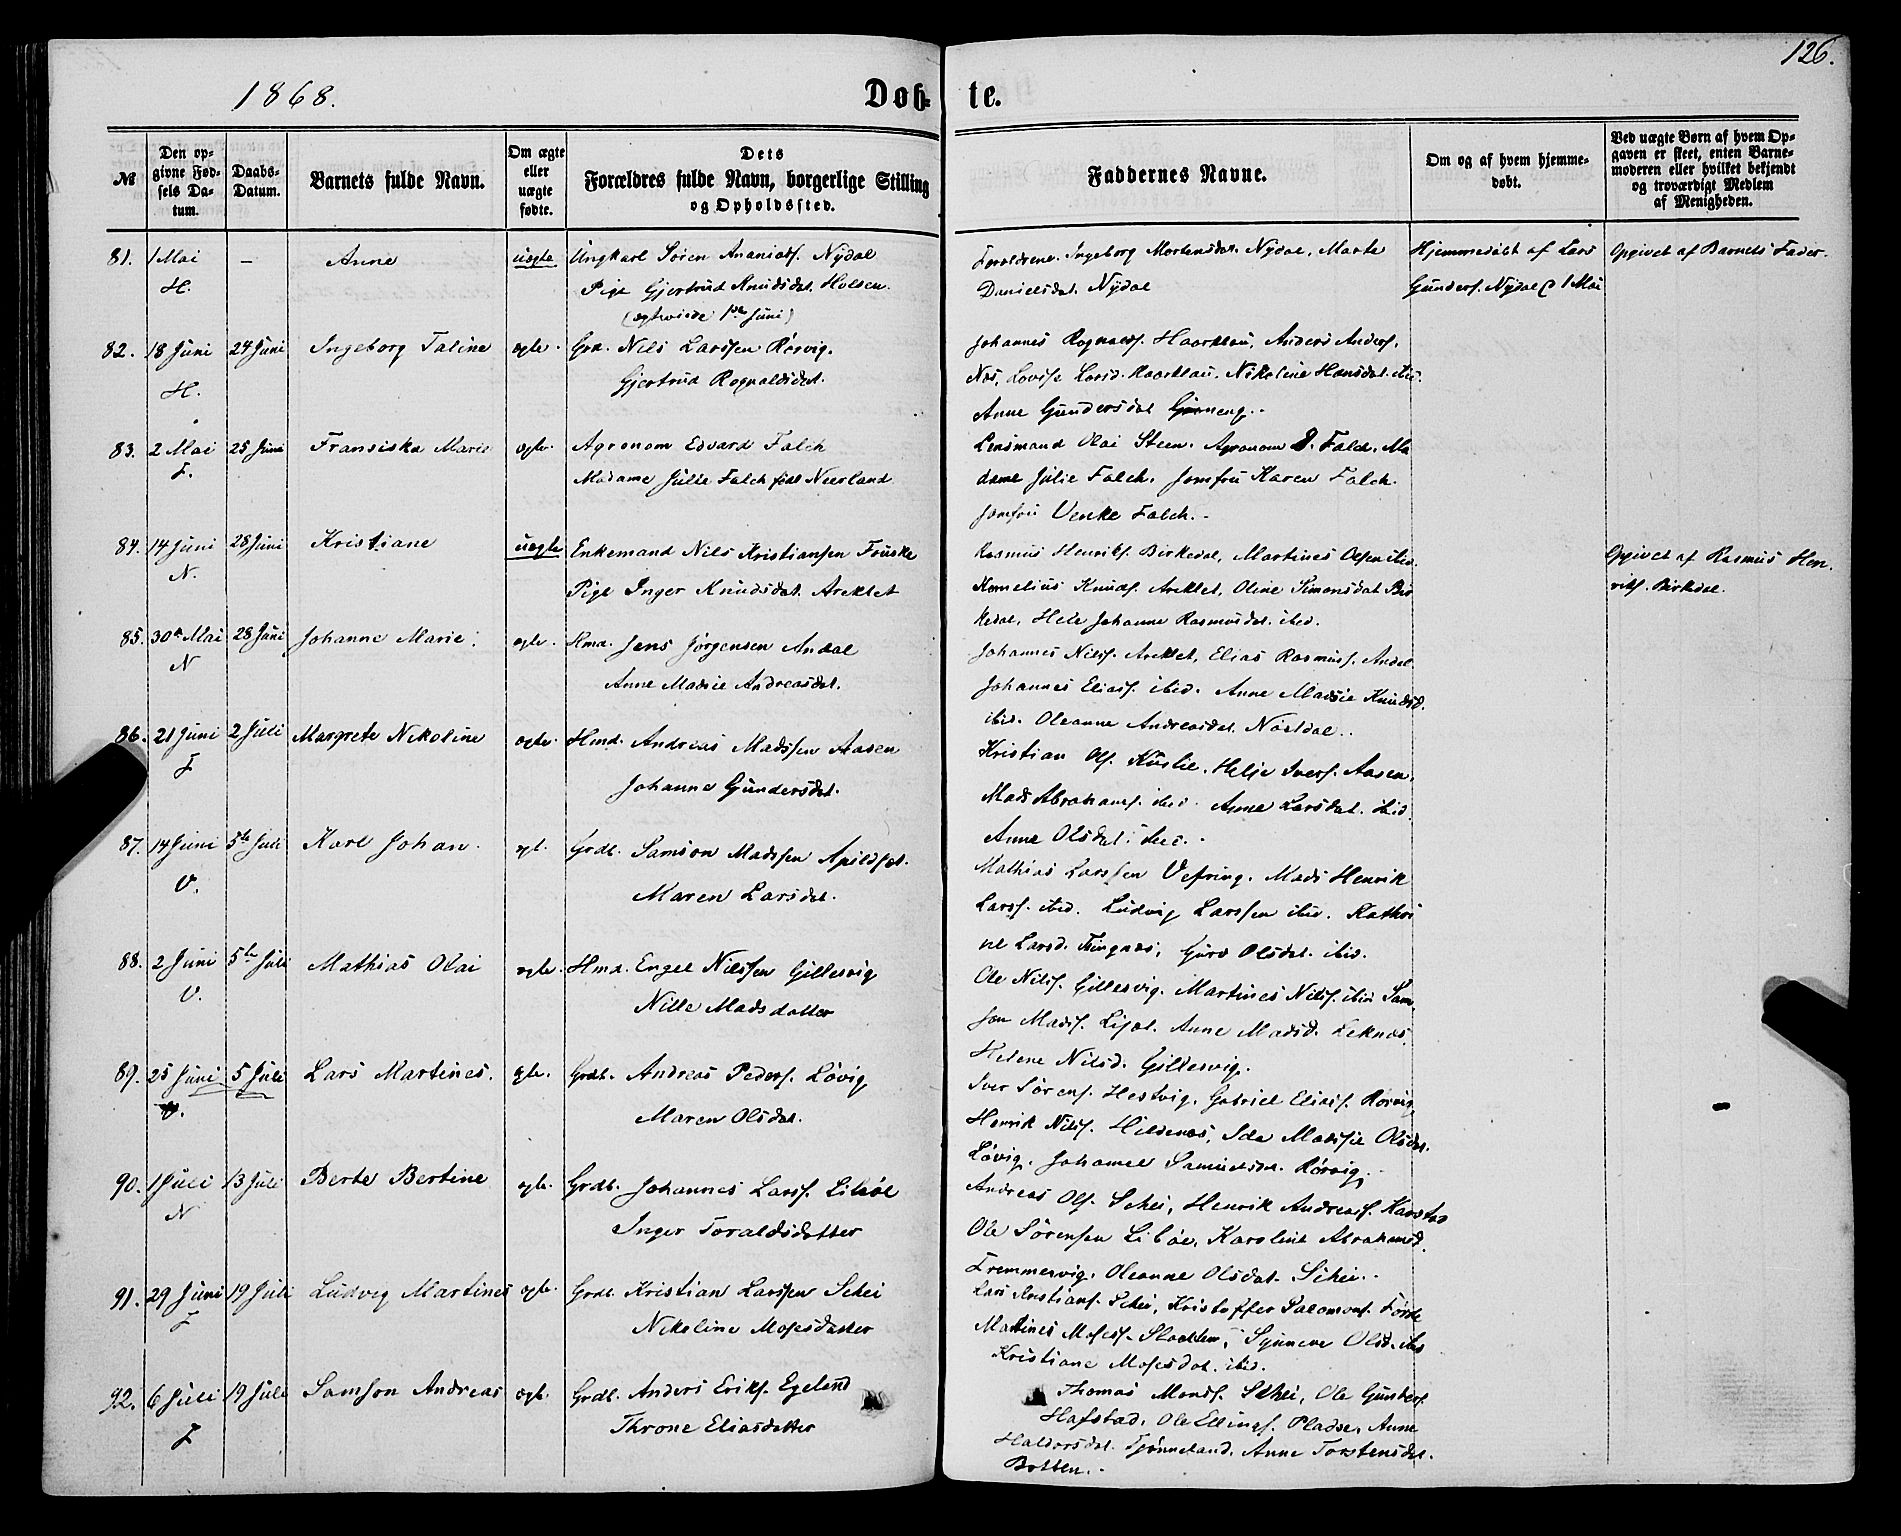 126.
1868.
Døb- te.
№
Den opgivne Fødsels Datum.
Daabs-Datum.
Barnets fulde Navn.
Om ægte eller uægte fødte.
Dets Forældres fulde Navn, borgerlige Stilling og Opholdssted.
Faddernes Navne.
Om og af hvem hjemmedøbt.
Ved uægte Børn af hvem Opgaven er skeet, enten Barnemoderen eller hvilket bekjendt og troværdigt Medlem af Menigheden.
81. 1 Mai — Anne uægte Ungkarl Søren Ananiasf. Nydal
H. Pige Gjertrud Knudsdat. Holsen.
(ægtviede 1ste Juni)
Forældrene. Ingeborg Mortensdat. Nydal, Marte
Danielsdat. Nydal
Hjemmedøbt af Lars
Gundersf. Nydal 1 Mai
Opgivet af Barnets Fader.
82. 18 Juni 24 Juni Ingeborg Taline ægte. Grd. Nils Larssen Rørvig.
H. Gjertrud Rognaldsdat.
Johannes Rognaldsf. Haarklau, Anders Andersf.
Nes, Lovise Larsd. Haarklau. Nikoline Hansdat. ibid.
Anne Gundersdat
83. 2 Mai 25 Juni Fransiska Marie ægte Agronom Edvard Falch
F. Madame Julie Falch född Neerland
Lensmand Olai Steen. Agronom E. Falch. Ma
dame Julie Falch. Jomfru Karen Falch.
Jomfru Venke Falch.
84. 14 Juni 28 Juni Kristiane uægte Enkemand Nils Kristiansen Fruske
N. Pige Inger Knudsdat. Areklet
Rasmus Henriksf. Birkedal, Martines Olsen ibid.
Kornelius Knudsf. Areklet, Oline Simonsdat Bir
kedal, Hele Johanne Rasmusdat. ibid.
Opgivet af Rasmus Hen
riksf. Birkdal.
85. 30te Mai 28 Juni Johanne Marie. ægte. Hmd. Jens Jørgensen Andal
N Anne Madsie Andreasdat.
Johannes Nilsf. Areklet, Elias Rasmusf. Andal
Johannes Eliasf. ibid. Anne Madsie Knudsd.
ibid. Oleanne Andreasdat. Nøsdal.
86. 21 Juni 2 Juli Margrete Nikoline ægte. Hmd. Andreas Madssen Aasen
F Johanne Gundersdat.
Kristian Olsf. Kuslie. Helje Iversf. Aasen.
Mads Abrahamsf. ibid. Anne Larsdat. ibid.
Anne Olsdat. ibid.
87. 14 Juni 5te Juli Karl Johan. ægt. Grdb. Samson Madssen Apildsæt.
V. Maren Larsdat.
Mathias Larssen Vefring. Mads Henrik
Larsf. ibid. Ludvig Larssen ibid. Kathri
ne Larsd. Guro Olsdat. ibid.
88. 2 Juni 5te Juli Mathias Olai ægte. Hmd. Engel Nilssen Gillesvig
V. Nille Madsdatter
Ole Nilsf. Gillesvig. Martines Nilsf. ibid Sam
son Madsf. Anne Madsd. Leknæs.
Helene Nilsd. Gillesvig.
89. 25 Juni 5 Juli Lars Martines. ægte. Grdb. Andreas Pedersf. Løvig
V. Maren Olsdat.
Iver Sørensf. Hestvig, Gabriel Eliasf. Rørvig
Henrik Nilsf. Hildenæs, Ida Madsie Olsdat.
Løvig. Johanne Samuelsdat. Rørvig.
90. 1 Juli 13 Juli Berte Bertine ægte. Grdb. Johannes Larsf. Libøe
N Inger Toraldsdatter
Andreas Olsf. Schei, Henrik Andreasf. Karstad
Ole Sørensen Libøe, Karoline Abrahamsd.
Fremmersvig. Oleanne Olsdat. Schei.
91. 29 Juni 19 Juli Ludvig Martines ægte. Grdb. Kristian Larssen Schei
F Nikoline Mosesdatter
Lars Kristiansf. Schei, Kristoffer Salomonsf. Førde
Martines Mosesf. Slaatten, Synneve Olsd. ibid
Kristiane Mosesdat. ibid.
92. 6 Juli 19 Juli Samson Andreas ægt. Grdb. Anders Eriksf. Egeland
F Throne Eliasdatter
Thomas Monsf. Schei, Ole Gundersf.
Hafstad. Ole Ellingsf. Pladse, Anne
Haldorsdat. Tjønneland. Anne Torstensdat.
Botten.